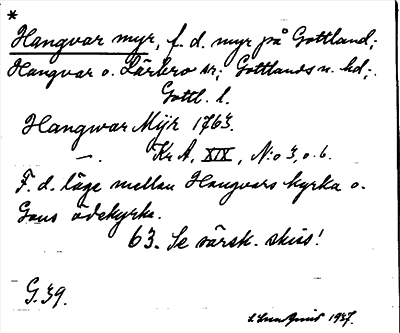 *
Hangvar myr, f. d. myr på Gottland;
Hangvar o. Lärbro sr; Gottlands n. hd;
Gottl. l.
Hangwar Mÿr 1763.
—. Kr A, XIX, N:o 3, o. 6.
F. d. läge mellan Hangvars kyrka o.
Gans ödekyrka.
63. Se särsk. skiss!
G. 39.
1937.